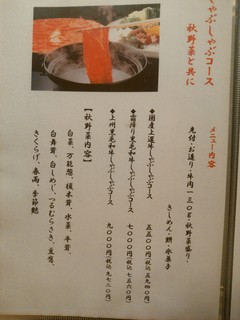 しゃぶしゃぶコース
秋野菜と共に
メニュー内容
先付・お造り・牛肉一三〇g・秋野菜盛り・
きしめん・餅・水菓子
◆国産上選牛しゃぶしゃぶコース
五五〇〇円(税込五九四〇円)
◆霜降り黒毛和牛しゃぶしゃぶコース
七〇〇〇円(税込七五六〇円)
◆上州黒毛和牛しゃぶしゃぶコース
九〇〇〇円(税込九七二〇円)
【秋野菜内容】
白菜、万能葱、榎本茸、水菜、平茸、
白舞茸、白しめじ、つるむらさき、豆腐、
きくらげ、春雨、手節麩